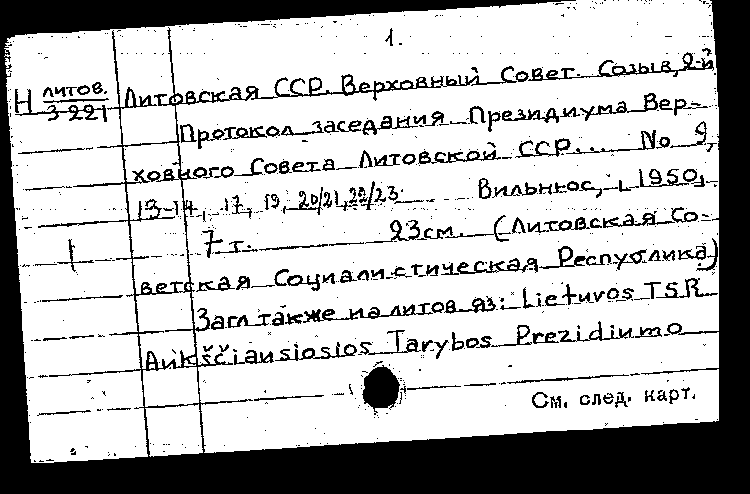 1.
Н литов. Литовская ССР. Верховный Совет. Созыв, 2-й
3-221
Протокол заседания Президиума Вер-
ховного Совета Литовской ССР... No 9,
13-14, 17, 19, 20/21, 22/23. Вильнюс, [1950].
7 т. 23см. (Литовская Со-
ветская Социалистическая Республика)
Загл также на литов яз: Lietuvos TSR
Aukščiausiosios Tarybos Prezidiumo
См. след. карт.